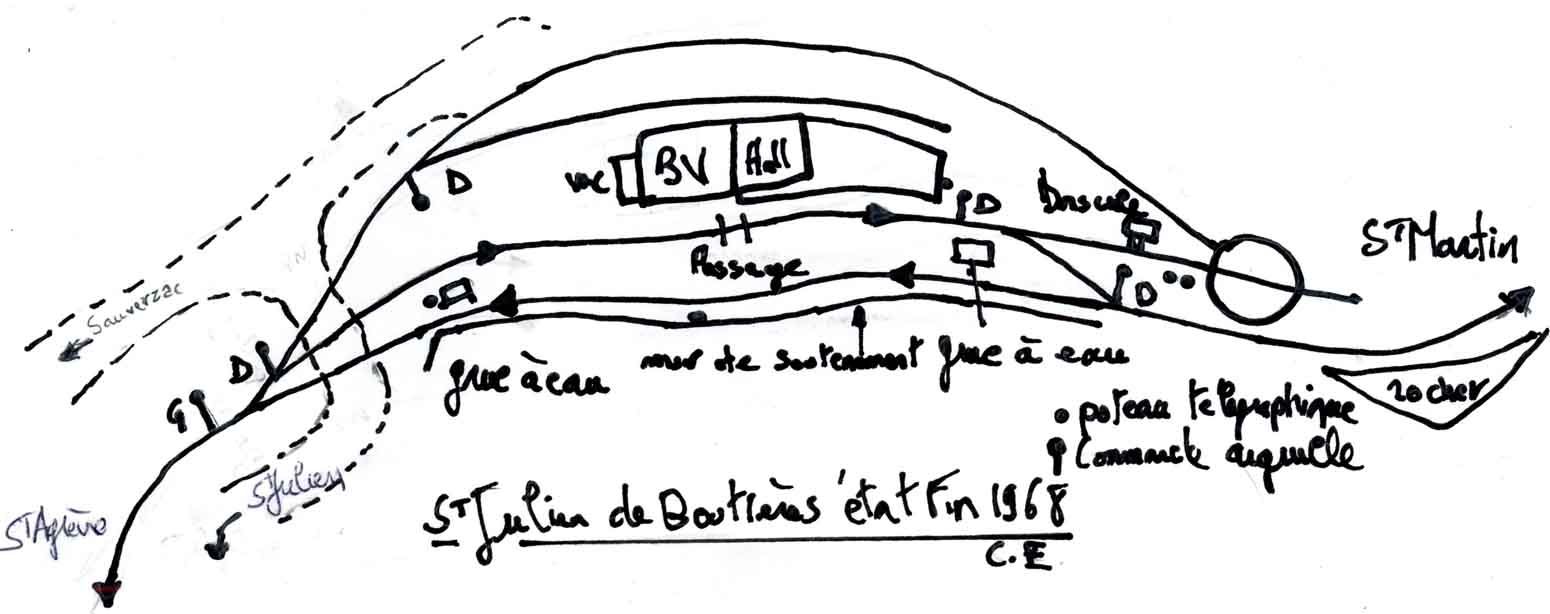 BV
Hall
WC
D
D
Bascule
ST Martin
VN
Passage
Sauverzac
D
D
G
grue à eau
mur de soutenement
grue à eau
rocher
poteau telegraphique
Commande aiguille
St Julien
ST Agrève
ST Julien de Boutières état Fin 1968
C.E